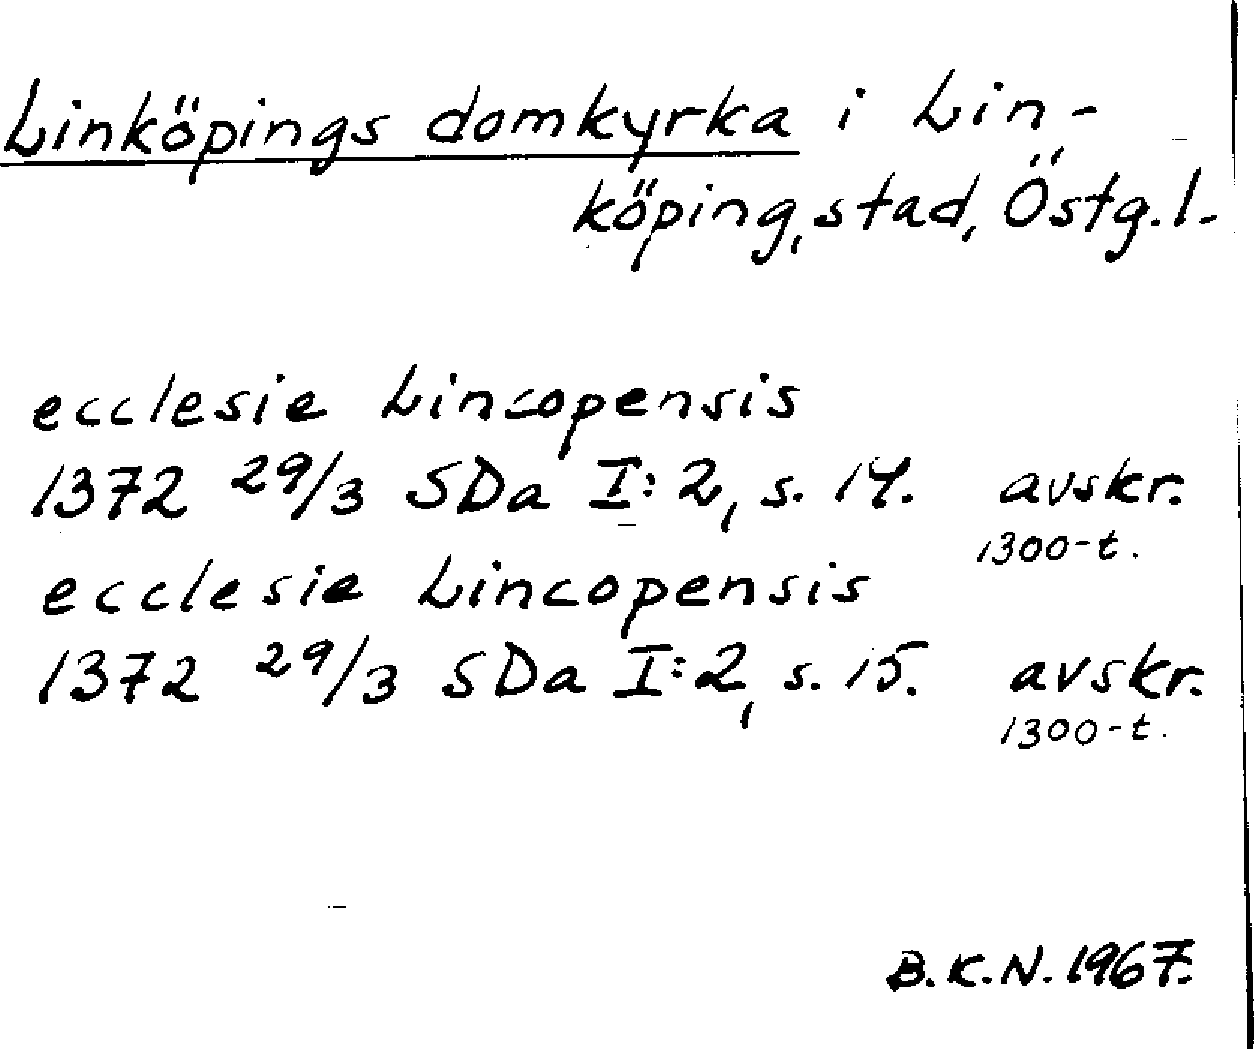 Linköpings domkyrka i Lin-
köping, stad, Östg.l.
ecclesie Lincopensis
1372 29/3 SDa I:2, s. 14. avskr.
1300-t.
ecclesie Lincopensis
1372 29/3 SDa I:2, s. 15. avskr.
1300-t.
B.K.N. 1967.